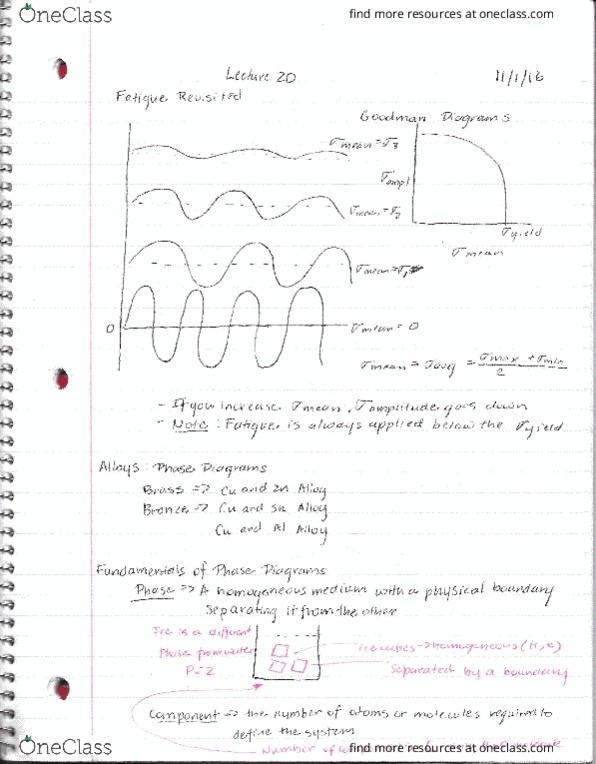 OneClass
find more resources at oneclass.com
Lecture 20
11/1/16
Fatigue Revisited
Goodman Diagrams
σmean = σ3
σampl
σmean = σ2
σyield
σmean
σmean = σ1
0
σmean = 0
σmean = σavg = σmax + σmin / 2
- If you increase σmean, σamplitude goes down
- Note: Fatigue is always applied below the σyield
Alloys: Phase Diagrams
Brass => Cu and Zn Alloy
Bronze -> Cu and Sn Alloy
Cu and Al Alloy
Fundamentals of Phase Diagrams
Phase => A homogeneous medium with a physical boundary
Separating it from the other
Ice is a different
Phase from water
P=2
Ice cubes -> homogeneous (H2O)
Separated by a boundary
Component => the number of atoms or molecules required to
define the system
Number of
OneClass
find more resources at oneclass.com